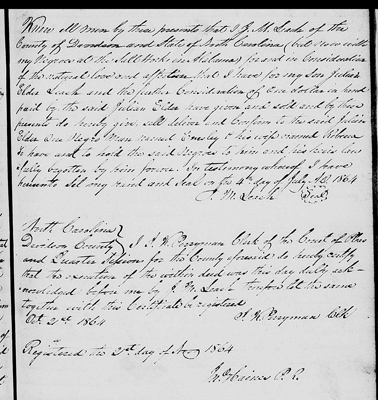 Know all men by these presents that I J. M. Leach of the
County of Davidson and State of North Carolina (but now with
my Negroes at the Salt Works in Alabama) for and in Consideration
of the natural love and affection that I have for my Son Julian
Elder Leach and the further Consideration of One dollar in hand
paid by the said Julian Elder have given and sold and by these
presents do hereby give, sell deliver and Confirm to the said Julian
Elder One Negro Man named & his wife named Rebecca
To have and to hold the said Negroes to him and his heirs law
fully begotten by him forever. In testimony whereof I have
hereunto Set my Hand and Seal on the 4th day of July AD. 1864
J. M. Leach Seal
North Carolina
Davidson County } I J. W. Perryman Clerk of the Court of Pleas
and Quarter Sessions for the County aforesaid do hereby certify
that the execution of the within deed was this day duly ack-
nowledged before me by J M Leach therefore let the same
together with this Certificate be registered
Oct 21st 1864 J. W. Perryman Clk
Registered the 21st day of 1864
Haines P. R.